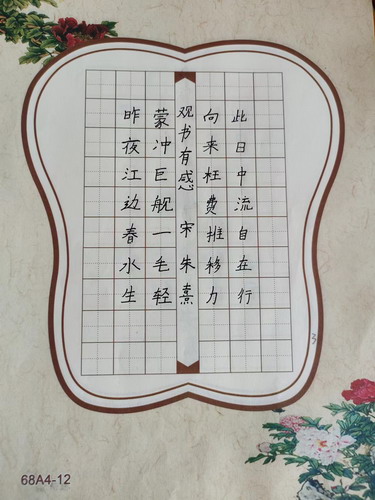 昨夜江边春水生
蒙冲巨舰一毛轻
观书有感 宋 朱熹
向来枉费推移力
此日中流自在行
3
68A4-12